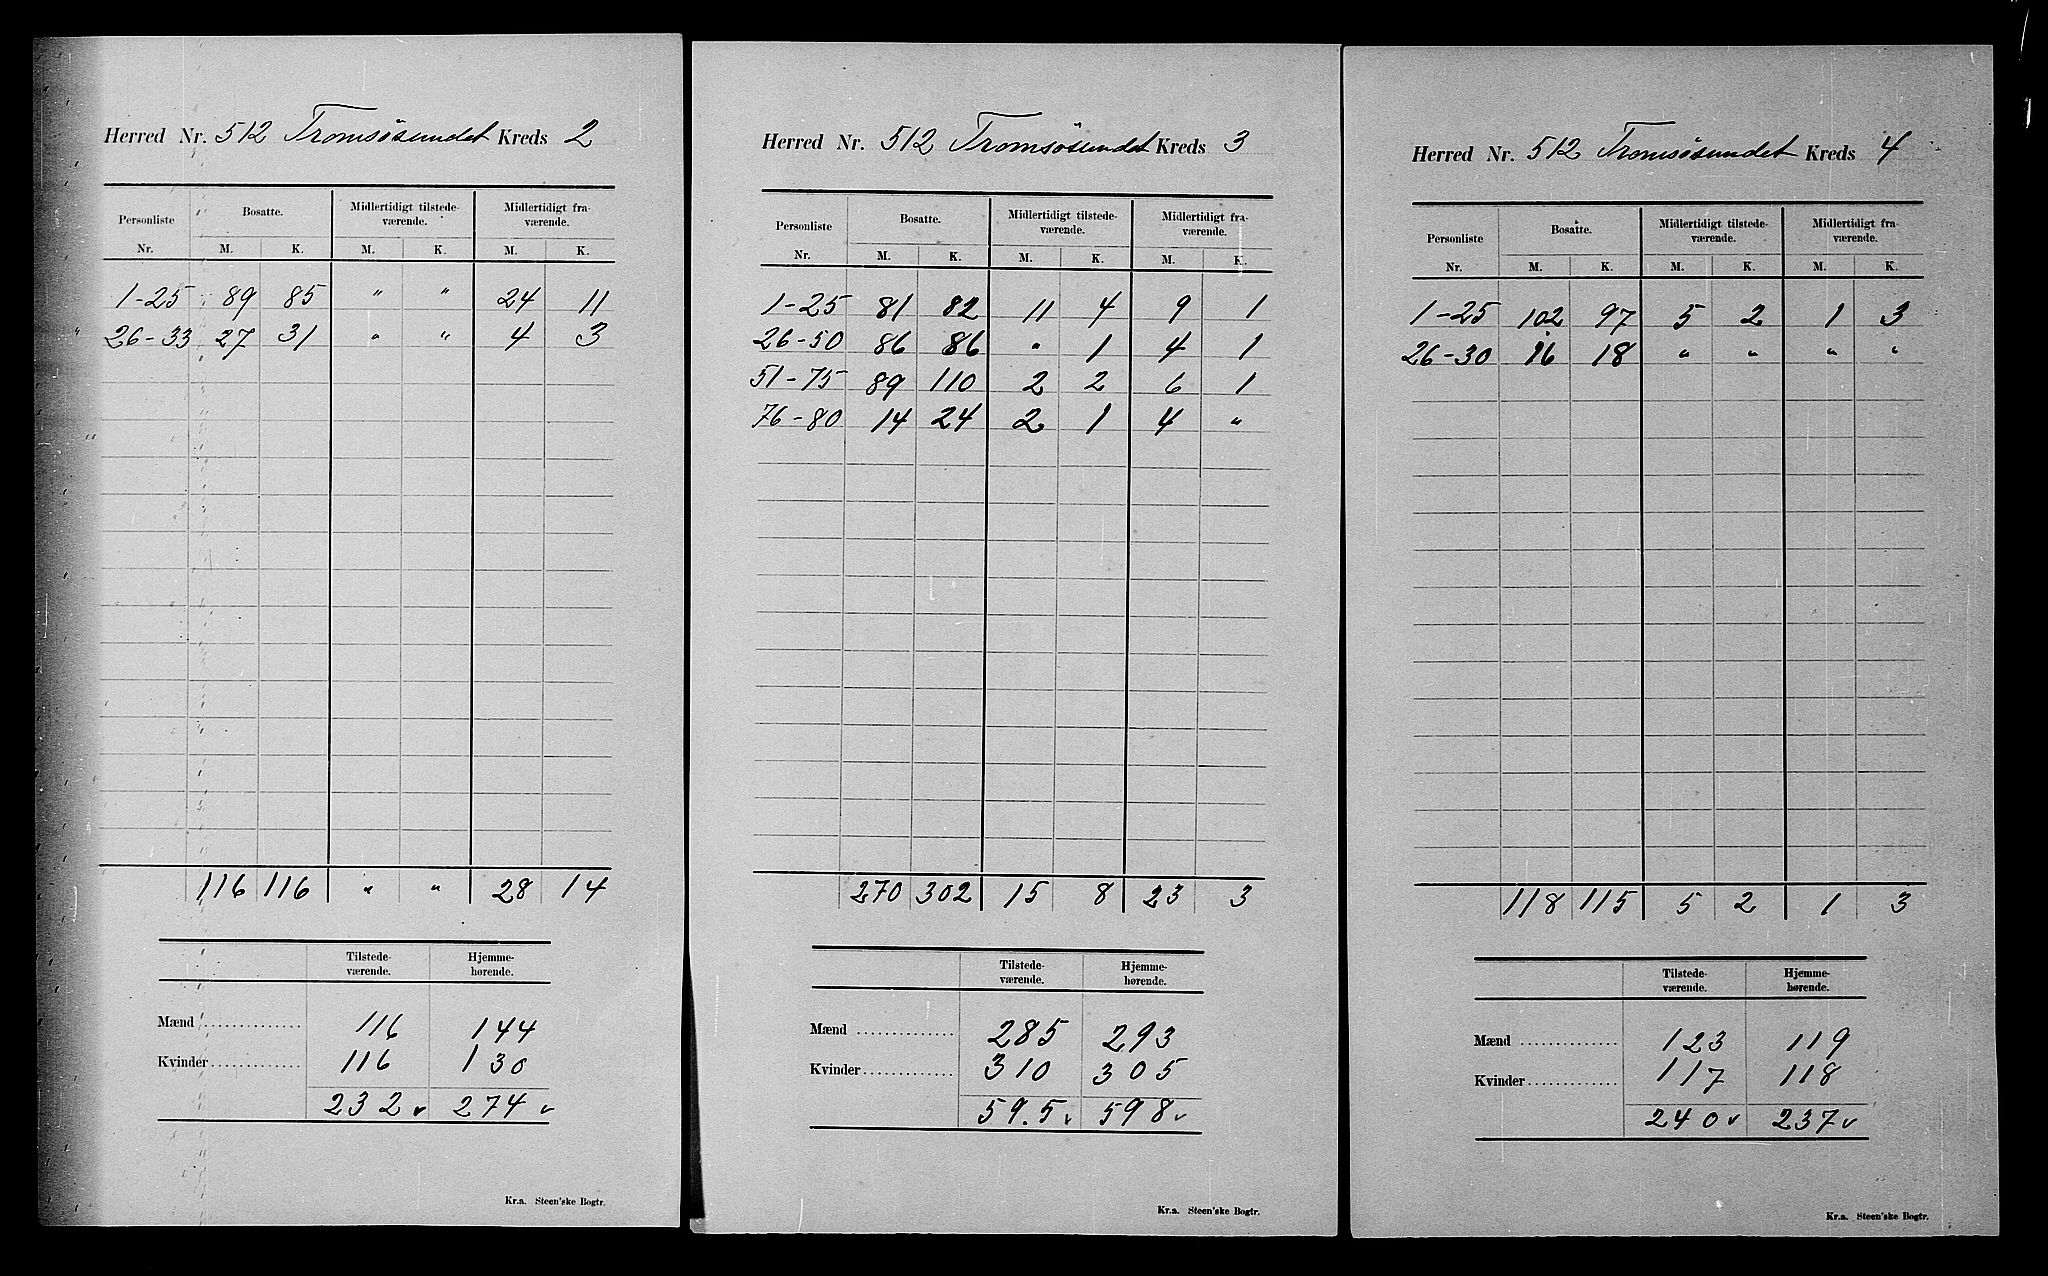 Herred Nr. 512 Tromsøsundet Kreds 2
Personliste Bosatte. Midlertidigt tilstede- Midlertidigt fra-
værende. værende.
Nr. M. K. M. K. M. K.
1-25 89 85 " " 24 11
26-33 27 31 " " 4 3
116 116 " " 28 14
Tilstede- Hjemme-
værende. hørende.
Mænd 116 144
Kvinder 116 130
232 v 274 v
Kr.a. Steen'ske Bogtr.
Herred Nr. 512 Tromsøsundet Kreds 3
Personliste Bosatte. Midlertidigt tilstede- Midlertidigt fra-
værende. værende.
Nr. M. K. M. K. M. K.
1-25 81 82 11 4 9 1
26-50 86 86 " 1 4 1
51-75 89 110 2 2 6 1
76-80 14 24 2 1 4 "
270 302 15 8 23 3
Tilstede- Hjemme-
værende. hørende.
Mænd 285 293
Kvinder 310 305
59.5 v 598 v
Kr.a. Steen'ske Bogtr.
Herred Nr. 512 Tromsøsundet Kreds 4
Personliste Bosatte. Midlertidigt tilstede- Midlertidigt fra-
værende. værende.
Nr. M. K. M. K. M. K.
1-25 102 97 5 2 1 3
26-30 16 18 " " " "
118 115 5 2 1 3
Tilstede- Hjemme-
værende. hørende.
Mænd 123 119
Kvinder 117 118
240 v 237 v
Kr.a. Steen'ske Bogtr.